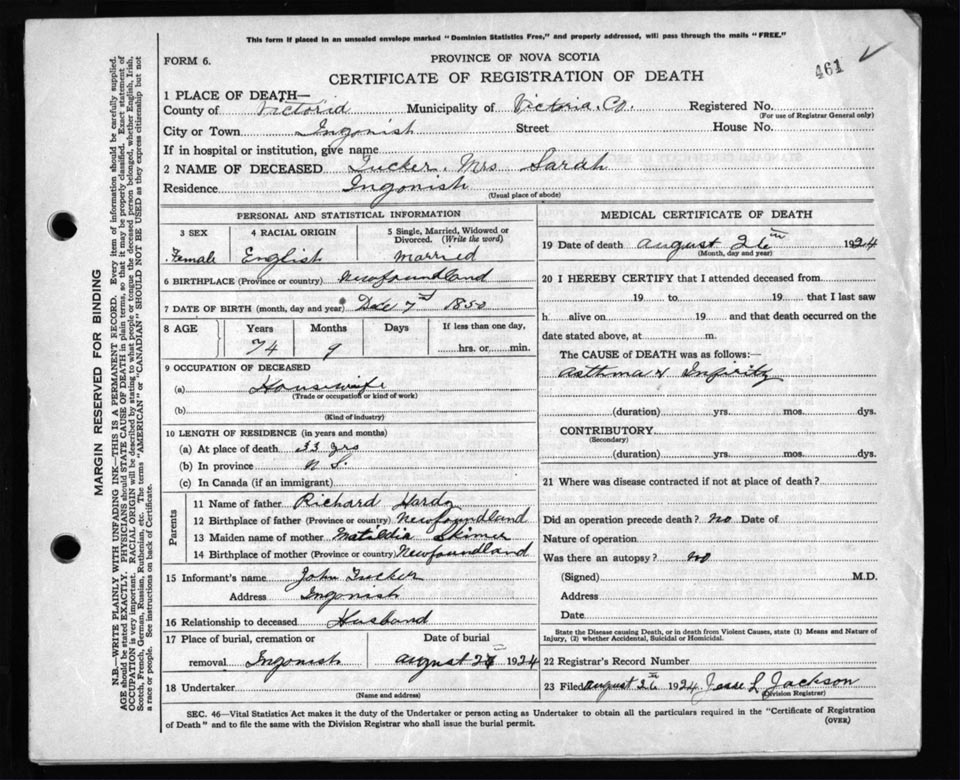 This form if placed in an unsealed envelope marked "Dominion Statistics Free," and properly addressed, will pass through the mails "FREE."
FORM 6.
PROVINCE OF NOVA SCOTIA
CERTIFICATE OF REGISTRATION OF DEATH
461
1 PLACE OF DEATH—
County of Victoria Municipality of Victoria Co. Registered No.
(For use of Registrar General only)
City or Town Ingonish Street House No.
If in hospital or institution, give name
2 NAME OF DECEASED Tucker, Mrs Sarah
Residence Ingonish
(Usual place of abode)
PERSONAL AND STATISTICAL INFORMATION
3 SEX 4 RACIAL ORIGIN 5 Single, Married, Widowed or Divorced. (Write the word)
Female English Married
6 BIRTHPLACE (Province or country) Newfoundland
7 DATE OF BIRTH (month, day and year) Dec 7th 1850
8 AGE Years Months Days If less than one day,
74 9 hrs. or min.
9 OCCUPATION OF DECEASED
(a) Housewife
(Trade or occupation or kind of work)
(b)
(Kind of industry)
10 LENGTH OF RESIDENCE (in years and months)
(a) At place of death 33 yrs
(b) In province N S.
(c) In Canada (if an immigrant)
Parents
11 Name of father Richard Hardy
12 Birthplace of father (Province or country) Newfoundland
13 Maiden name of mother Matildia Skimer
14 Birthplace of mother (Province or country) Newfoundland
15 Informant's name John Tucker
Address Ingonish
16 Relationship to deceased Husband
17 Place of burial, cremation or removal Ingonish
Date of burial
August 1924
18 Undertaker
(Name and address)
MEDICAL CERTIFICATE OF DEATH
19 Date of death August 26th 1924
(Month, day and year)
20 I HEREBY CERTIFY that I attended deceased from
19 to 19 that I last saw
h alive on 19 and that death occurred on the
date stated above, at m.
The CAUSE of DEATH was as follows:—
Asthma & Infirity
(duration) yrs. mos. dys.
CONTRIBUTORY
(Secondary)
(duration) yrs. mos. dys.
21 Where was disease contracted if not at place of death?
Did an operation precede death? no Date of
Nature of operation
Was there an autopsy? no
(Signed) M.D.
Address
Date
State the Disease causing Death, or in death from Violent Causes, state (1) Means and Nature of
Injury, (2) whether Accidental, Suicidal or Homicidal.
22 Registrar's Record Number
23 Filed August 26th 1924 Jesse L Jackson
(Division Registrar)
SEC. 46—Vital Statistics Act makes it the duty of the Undertaker or person acting as Undertaker to obtain all the particulars required in the "Certificate of Registration
of Death" and to file the same with the Division Registrar who shall issue the burial permit.
(OVER)
MARGIN RESERVED FOR BINDING
N.B.—WRITE PLAINLY WITH UNFADING INK—THIS IS A PERMANENT RECORD. Every item of information should be carefully supplied.
AGE should be stated EXACTLY. PHYSICIANS should STATE CAUSE OF DEATH in plain terms, so that it may be properly classified. Exact statement of
OCCUPATION is very important. RACIAL ORIGIN will be described by stating to what people or tongue the deceased person belonged, whether English, Irish,
Scotch, French, German, Russian, Ruthenian, etc. The terms "AMERICAN" or "CANADIAN" SHOULD NOT BE USED as they express citizenship but not
a race or people. See instructions on back of Certificate.